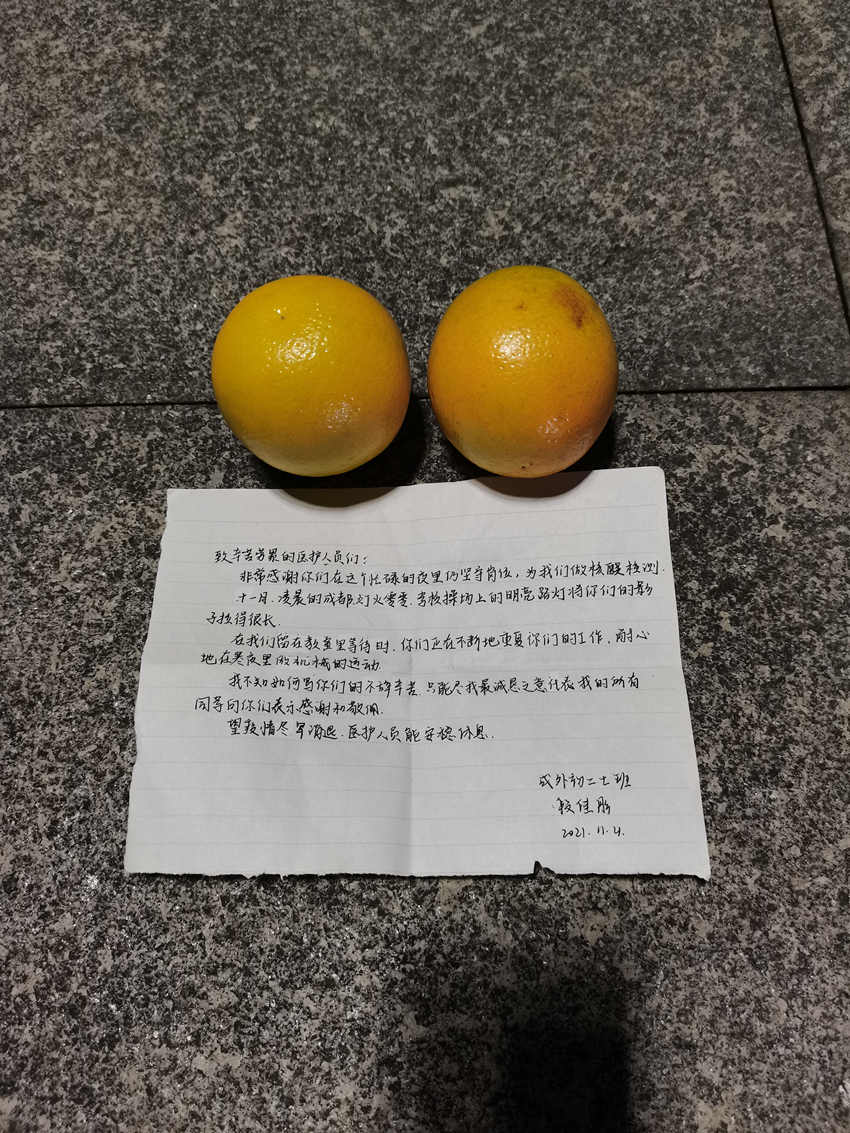 致辛苦劳累的医护人员们：
非常感谢你们在这个忙碌的夜里仍坚守岗位，为我们做核酸检测.
十一月，凌晨的成都灯火零零，学校操场上的明亮路灯将你们的影
子拉得很长.
在我们留在教室里等待时，你们正在不断地重复你们的工作，耐心
地在寒夜里做机械的运动.
我不知如何写你们的不辞辛苦，只能尽我最诚恳之意代表我的所有
同学向你们表示感谢和敬佩.
望疫情尽早消退，医护人员能安稳休息.
成外初二七班
佳彤
2021.11.4.